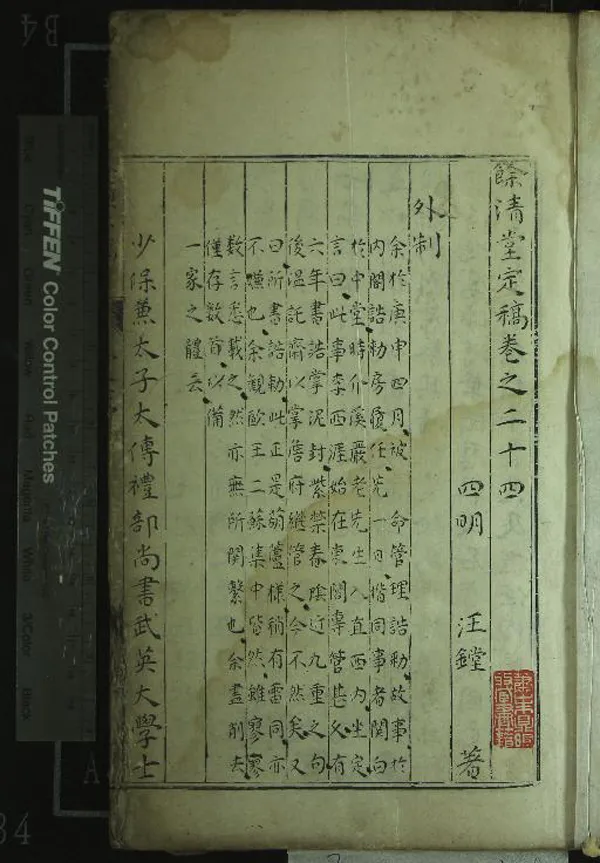 餘清堂定稿卷之二十四
四明 汪鏜 著
外制
余於庚申四月被 命管理誥勅故事於
内閣誥勅房履任先一日揩同事者関白
於中堂時介溪嚴老先生入直西内坐定
言曰此事李西涯始在東閣專管甚久有
六年書誥掌泥封紫禁春陰近九重之句
後温託齋以掌詹府継管之今不然矣又
曰所書誥勅此正是葫蘆樣稍有雷同亦
不嫌也余観歐王二蘇集中皆然雖寥寥
数言悉載之然亦無所関繫也余盡削去
僅存数首以備
一家之體云
少保兼太子太傅禮部尚書武英大學士
TIFFEN Color Control Patches
B4